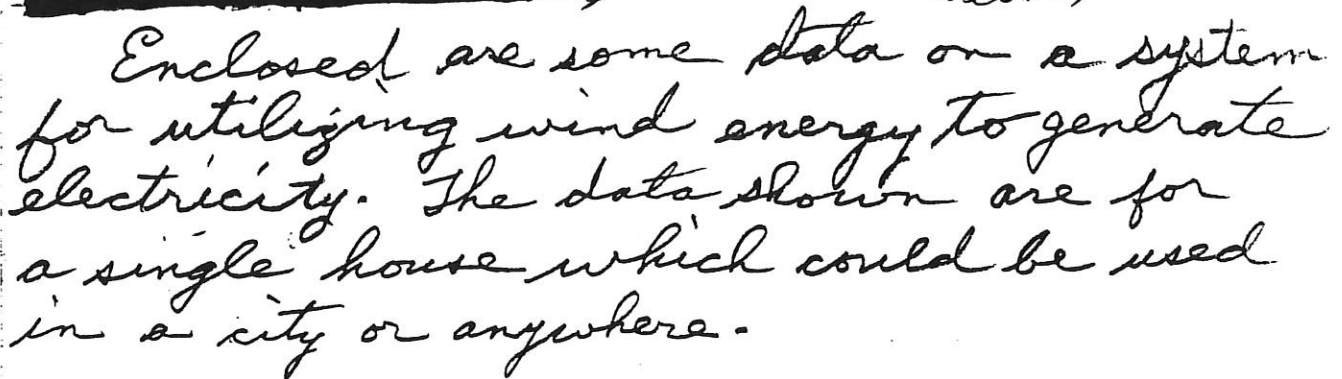 Enclosed are some data on a system
for utilizing wind energy to generate
electricity. The data shown are for
a single house which could be used
in a city or anywhere.